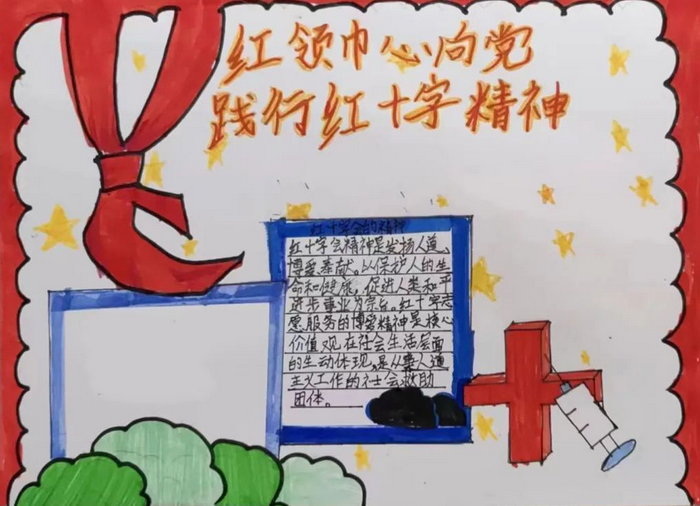 红领巾心向党
践行红十字精神
红十字会的精神
红十字会精神是发扬人道、
博爱奉献。以保护人的生
命和健康，促进人类和平
进步事业为宗旨。红十字志
愿服务的博爱精神是核心
价值观在社会生活层面
的生动体现，是从事人道
主义工作的社会救助
团体。